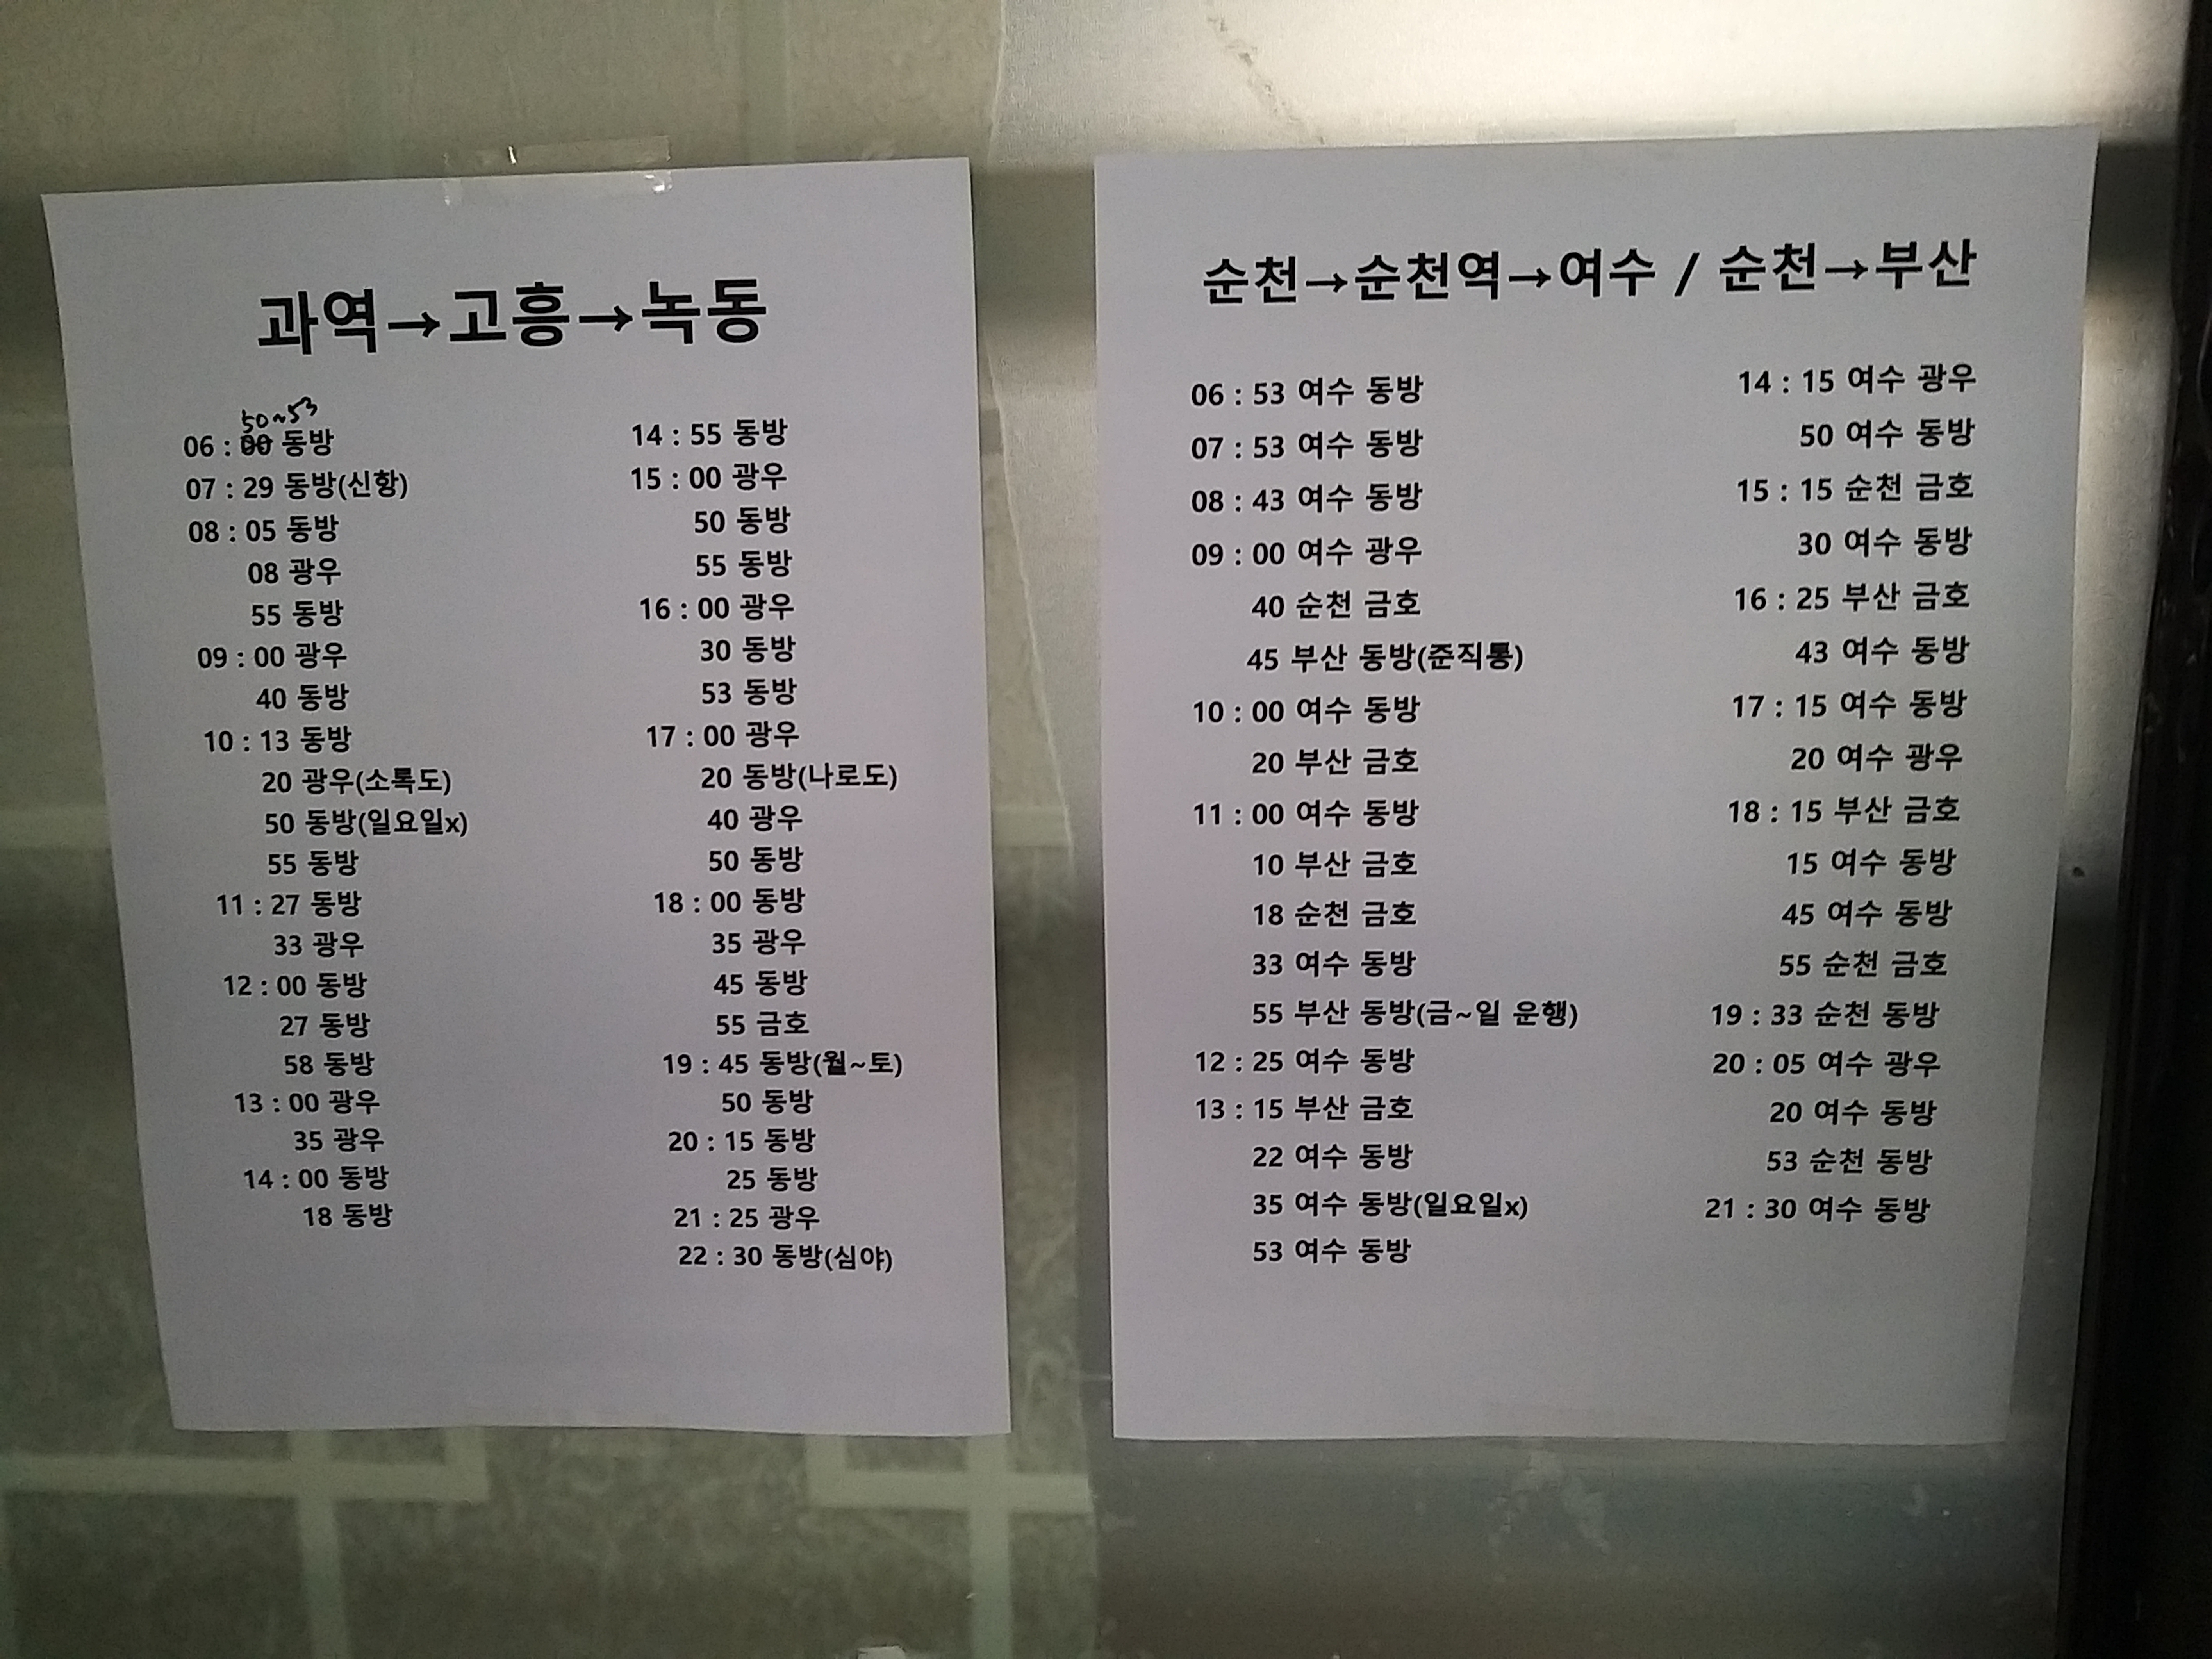 과역→고흥→녹동
50~53
06 : 00 동방
07 : 29 동방(신항)
08 : 05 동방
08 광우
55 동방
09 : 00 광우
40 동방
10 : 13 동방
20 광우(소록도)
50 동방(일요일x)
55 동방
11 : 27 동방
33 광우
12 : 00 동방
27 동방
58 동방
13 : 00 광우
35 광우
14 : 00 동방
18 동방
14 : 55 동방
15 : 00 광우
50 동방
55 동방
16 : 00 광우
30 동방
53 동방
17 : 00 광우
20 동방(나로도)
40 광우
50 동방
18 : 00 동방
35 광우
45 동방
55 금호
19 : 45 동방(월~토)
50 동방
20 : 15 동방
25 동방
21 : 25 광우
22 : 30 동방(심야)
순천→순천역→여수 / 순천→부산
06 : 53 여수 동방
07 : 53 여수 동방
08 : 43 여수 동방
09 : 00 여수 광우
40 순천 금호
45 부산 동방(준직통)
10 : 00 여수 동방
20 부산 금호
11 : 00 여수 동방
10 부산 금호
18 순천 금호
33 여수 동방
55 부산 동방(금~일 운행)
12 : 25 여수 동방
13 : 15 부산 금호
22 여수 동방
35 여수 동방(일요일x)
53 여수 동방
14 : 15 여수 광우
50 여수 동방
15 : 15 순천 금호
30 여수 동방
16 : 25 부산 금호
43 여수 동방
17 : 15 여수 동방
20 여수 광우
18 : 15 부산 금호
15 여수 동방
45 여수 동방
55 순천 금호
19 : 33 순천 동방
20 : 05 여수 광우
20 여수 동방
53 순천 동방
21 : 30 여수 동방